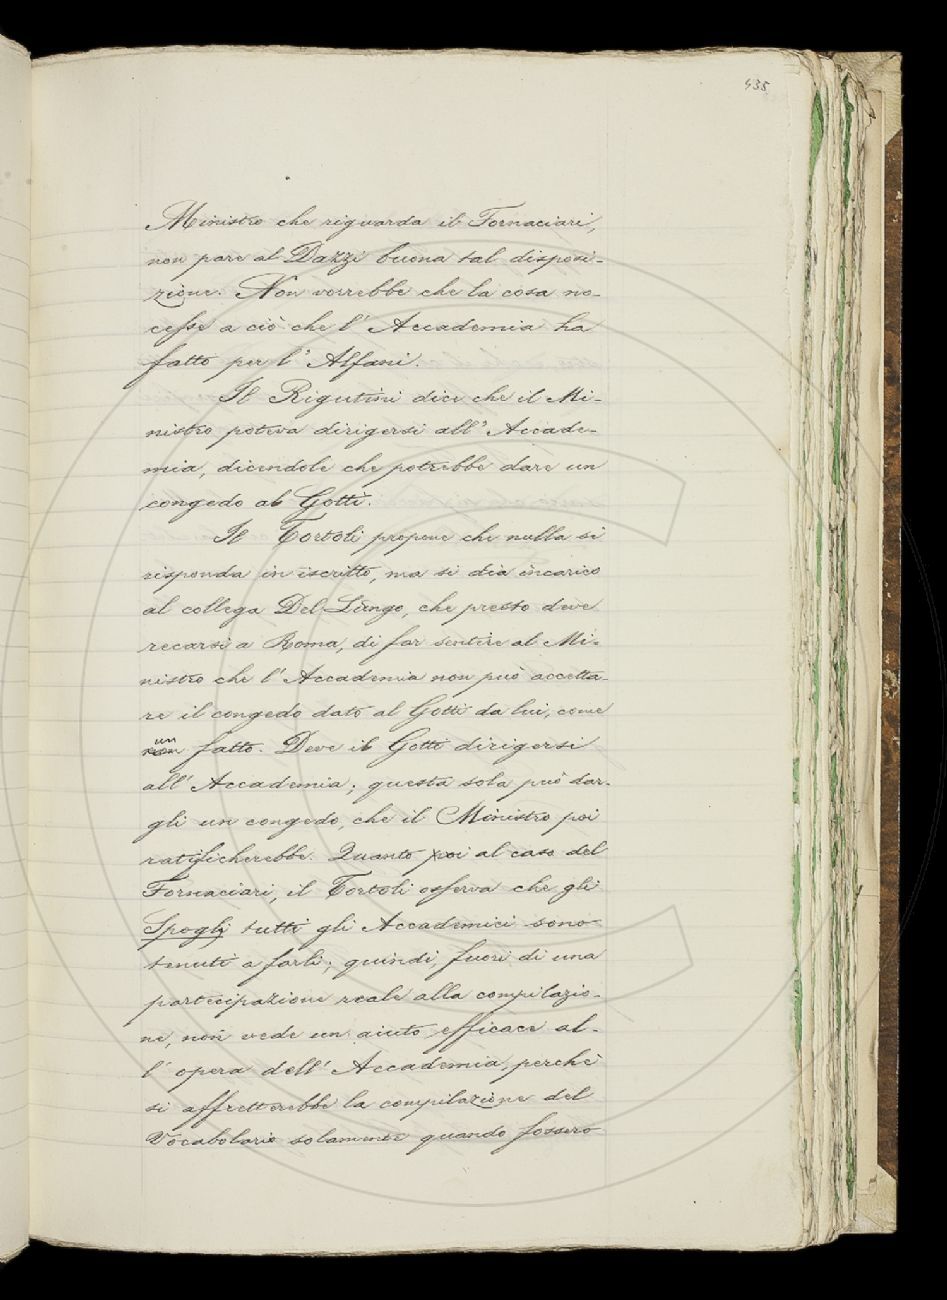 435
Ministro che riguarda il Fornaciari,
non pare al Dazzi buona tal disposi-
zione. Non vorrebbe che la cosa no-
cesse a ciò che l' Accademia ha
fatto per l' Alfani.
Il Rigutini dice che il Mi-
nistro poteva dirigersi all' Accade-
mia, dicendole che potrebbe dare un
congedo al Gotti.
Il Tortoli propone che nulla si
risponda in iscritto, ma si dia incarico
al collega Del Lungo, che presto deve
recarsi a Roma, di far sentire al Mi-
nistro che l' Accademia non può accetta-
re il congedo dato al Gotti da lui, come
un fatto. Deve il Gotti dirigersi
all' Accademia; questa sola può dar-
gli un congedo, che il Ministro poi
ratificherebbe. Quanto poi al caso del
Fornaciari, il Tortoli osserva che gli
Spogli tutti gli Accademici sono
tenuti a farli; quindi, fuori di una
partecipazione reale alla compilazio-
ne, non vede un aiuto efficace al-
l' opera dell' Accademia, perchè
si affretterebbe la compilazione del
Vocabolario solamente quando fossero